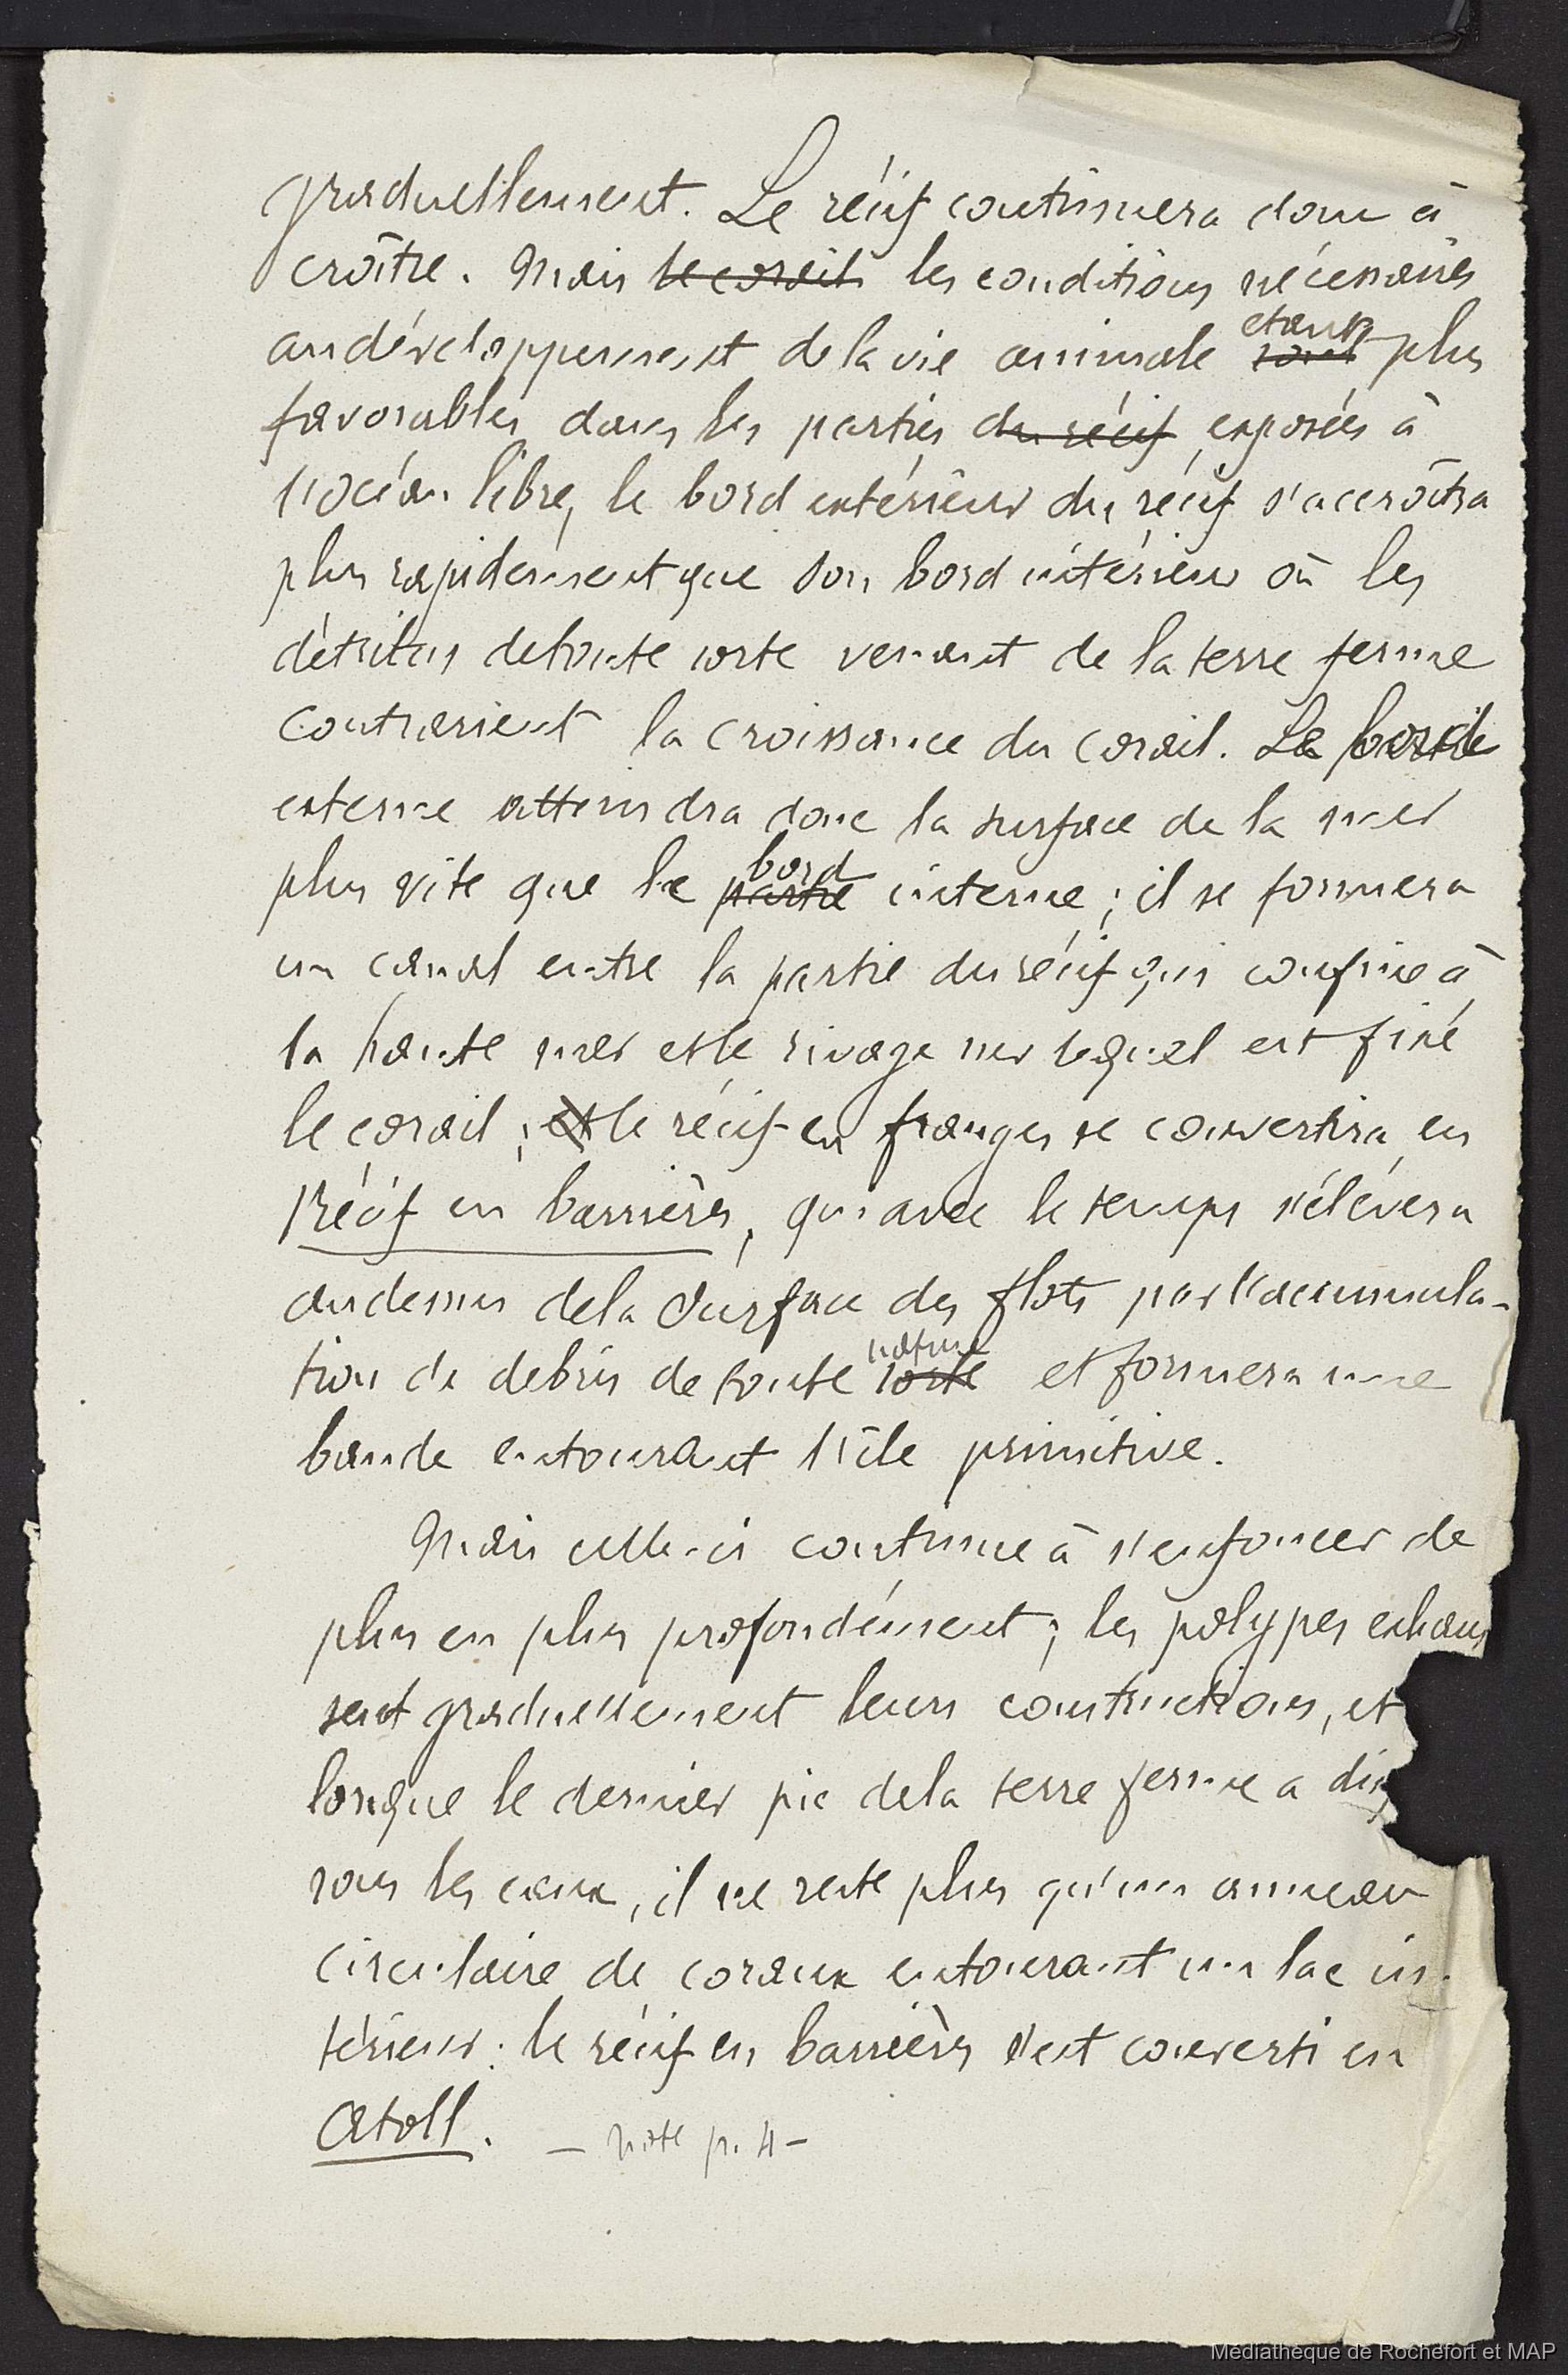 graduellement. Le récif continuera donc à
croître. Mais le corail les conditions nécessaires
au développement de la vie animale sont étant plus
favorables dans les parties du récif exposées à
l'océan libre, le bord extérieur du récif s'accroîtra
plus rapidement que son bord intérieur où les
détritus de toute sorte venant de la terre ferme
contrarient la croissance du corail. Le bord
externe atteindra donc la surface de la mer
plus vite que le partie bord interne ; il se formera
un canal entre la partie du récif qui confine à
la haute mer et le rivage sur lequel est fixé
le corail ; et le récif en franges se convertira en
Récif en barrières, qui avec le temps s'élèvera
au dessus de la surface des flots par l'accumula-
tion de débris de toute sorte nature et formera une
bande entourant l'île primitive.
Mais celle-ci continue à s'enfoncer de
plus en plus profondément ; les polypes exhaus
sent graduellement leurs constructions, et
lorsque le dernier pic de la terre ferme a dis
sous les eaux, il ne reste plus qu'un anneau
circulaire de coraux entourant un lac in-
térieur : le récif en barrières s'est converti en
Atoll. — note p. 4 —
Médiathèque de Rochefort et MAP